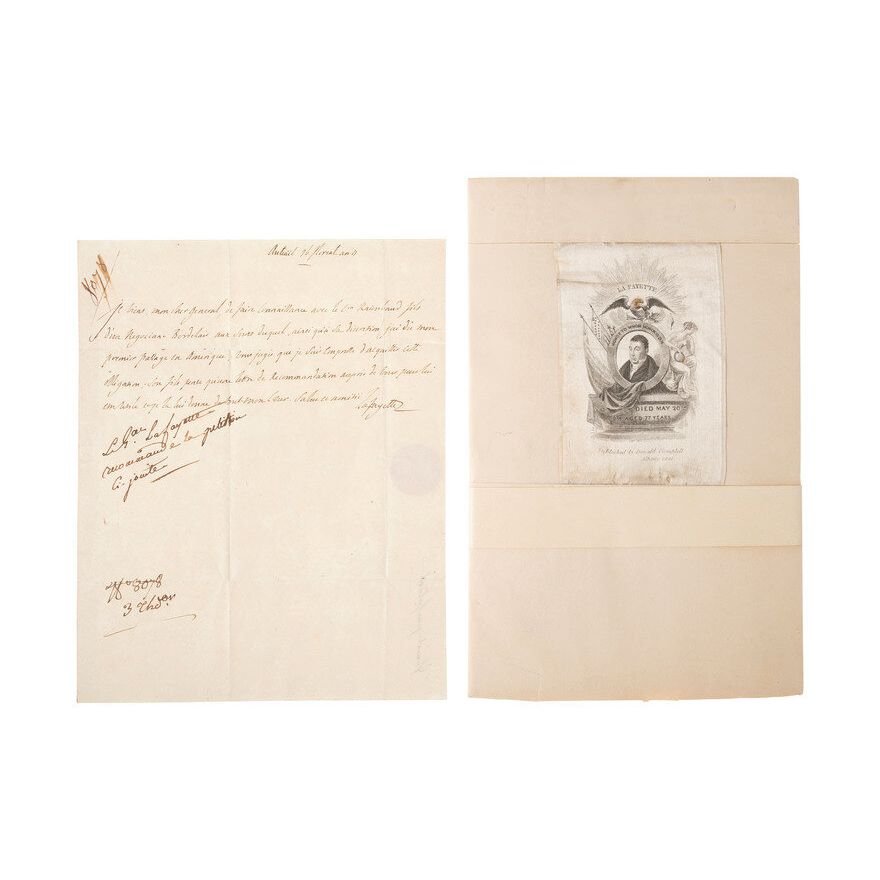 8078
Auteuil 16 floréal an 11
je viens, mon cher general de faire connaissance avec le Cen Raimbaud fils
d'un Negociant Bordelais aux Soins duquel, ainsi qu'à sa discretion, j'ai dû mon
premier passage en Amérique, Vous jugés que je Suis Empressé d'acquitter cette
obligation. Son fils pense qu'une lettre de Recommandation auprès de Vous peut lui
être utile et je la lui donne de tout mon Cœur. Salut et amitié
Lafayette
Le Gal Lafayette
recommande la petition
Ci-jointe
No 8078
LA FAYETTE
DIED MAY 20
AGED 77 YEARS
Published by Donald Campbell